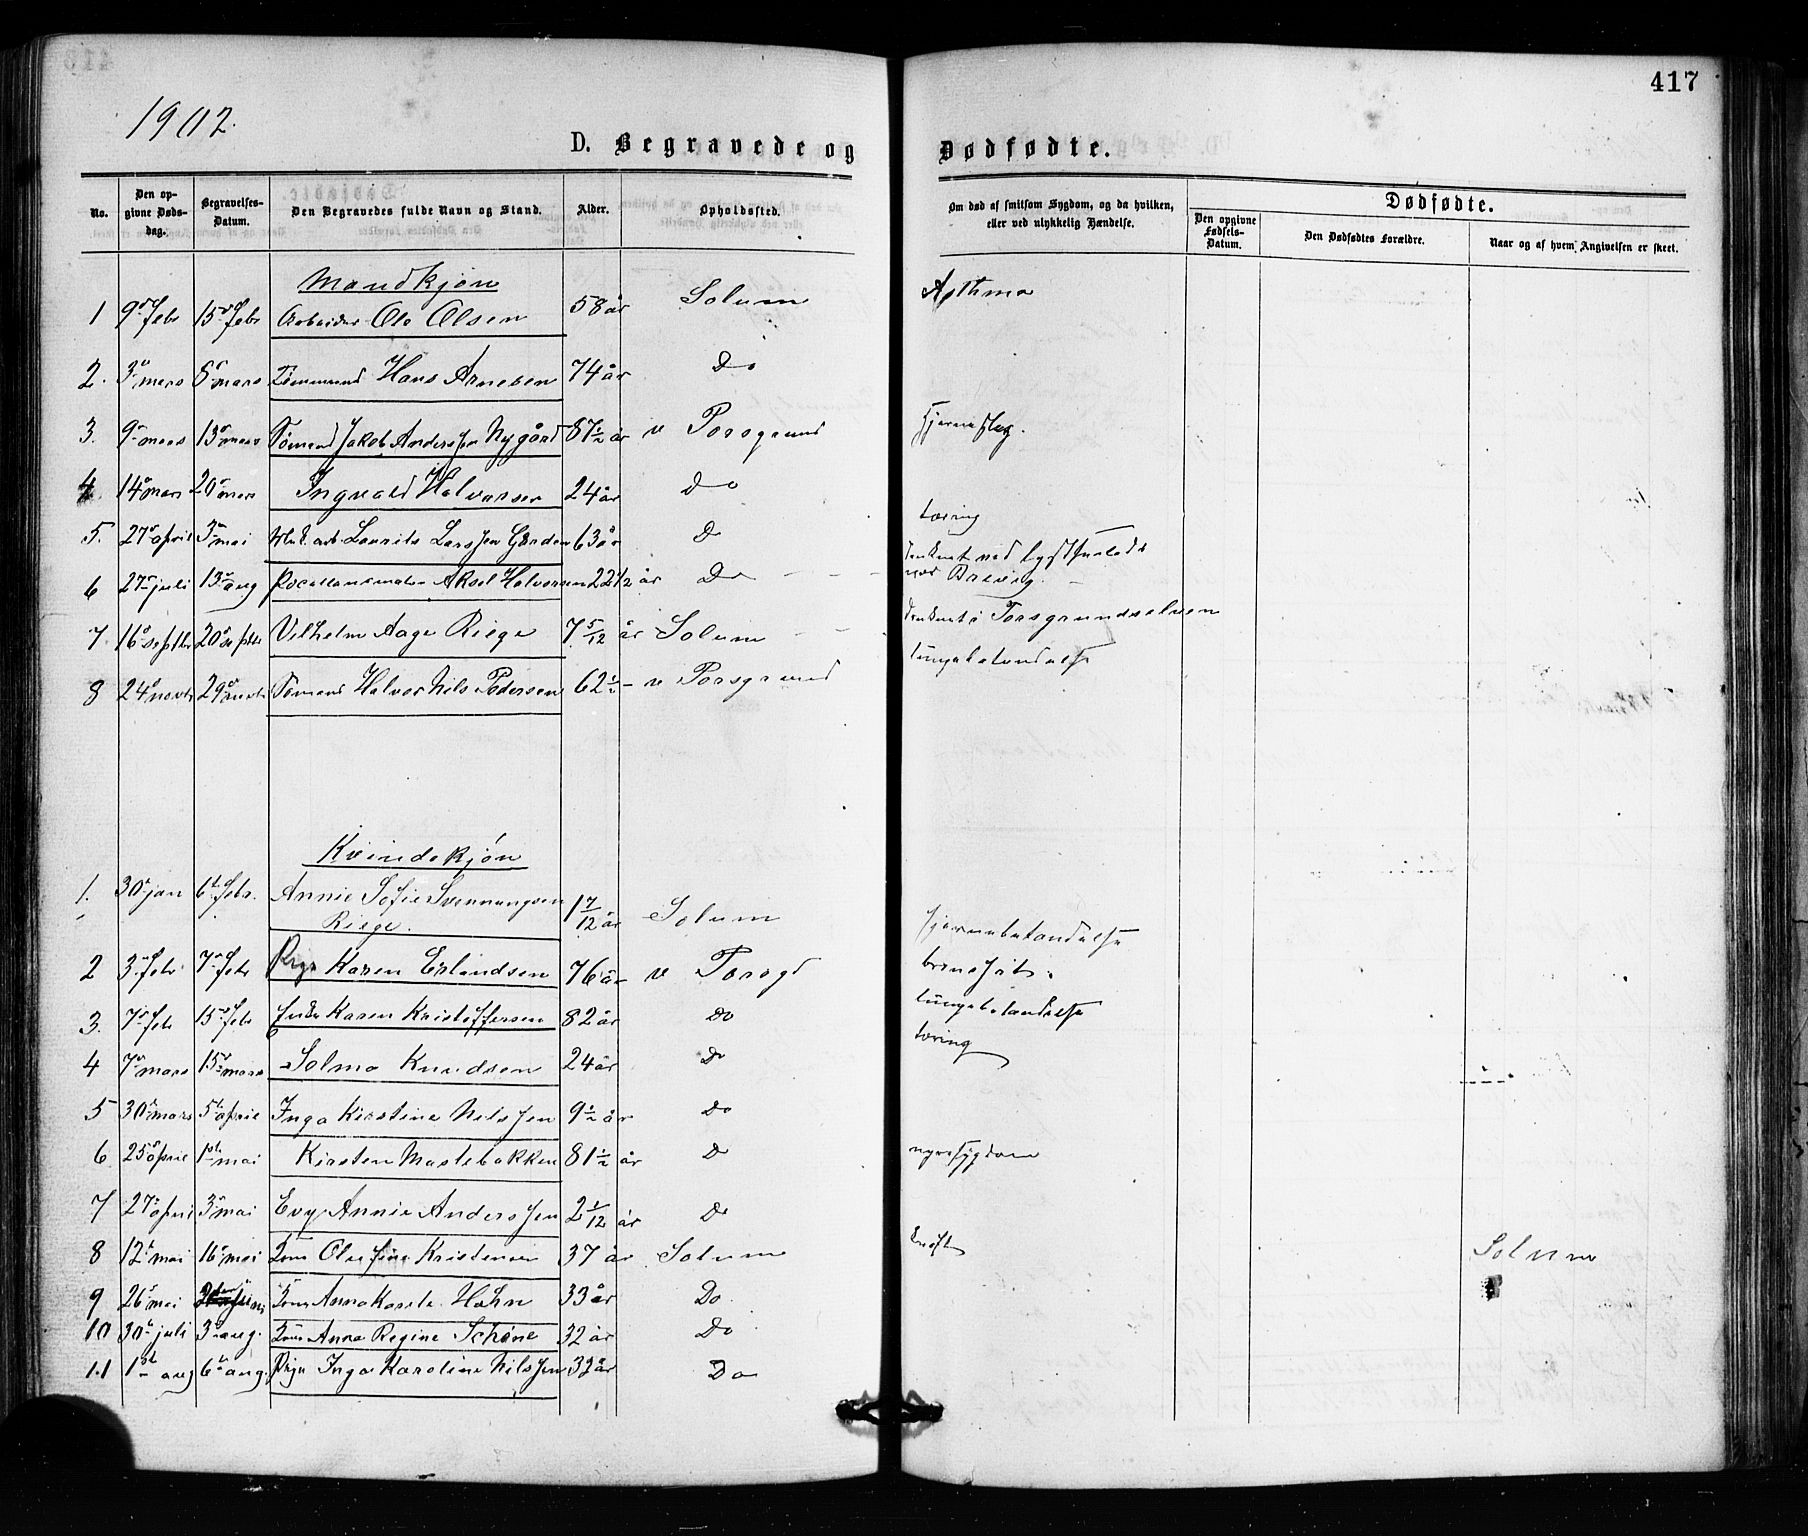 417
1902.
D. Begravede og Dødfødte.
No.
Den opgivne Dødsdag.
Begravelses-Datum.
Den Begravedes fulde Navn og Stand.
Alder.
Opholdssted.
Om død af smitsom Sygdom, og da hvilken, eller ved ulykkelig Hændelse.
Dødfødte.
Den opgivne Fødsels-Datum.
Den Dødfødtes Forældre.
Naar og af hvem Angivelsen er skeet.
Mandkjøn
1 9de febr 15de febr Arbeider Ole Olsen 58 år Solum Asthma
2. 3 mars 8 mars Tømmermand Hans Arnesen 74 år Do
3. 9 mars 13 mars Sømand Jakob Anderssen Nygård 87 1/2 år v Porsgrund hjerneslag.
4 14 mars 20 mars Ingvald Halvorsen 24 år Do
tæring
5. 27 april 3 mai Larssen Laurits Gården 63 år Do
druknet ved lystseilads
6 27 juli 13 aug Porcellansmaler Aksel Halvorsen 22 1/2 år Do
nær Brevig.
7 16 septbr 20 septbr Vilhelm Aage Riege 7 5/12 år Solum
druknet i Porsgrundselven
8 24 novbr 29 novbr Sømand Halvor Nils Pedersen 62 1/2 - v Porsgrund
lungebetændelse
Kvindekjøn
1. 30 jan 6te febr. Annie Sofie Svennungsen Riege. 1 7/12 år Solum hjernebetændelse
2 3 febr 7 febr Pige Karen Erlandsen 76 år v Porsgd brinesfåt.
3. 7 feb 15 feb Enke Karen Kristoffersen 82 år Do lungebetændelse
4 7 mars 15 mars Solma Knudsen 24 år Do tæring
5 30 mars 5te april Inga Kirstine Nilssen 9 1/2 år Do
6 25 april 1ste mai Kirsten Mastebakken 81 1/2 år Do nyresygdom
7 27 april 3 mai Evy Annie Anderssen 2 1/12 år Do
8 12 mai 16 mai Kone Olefine Kristensen 37 år Solum kræft Solum
9 26 mai juni Kone Anna Høhn 33 år Do
10 30 juli 3 aug. Kone Anna Regine Schøne 32 år Do
11 1st aug 6te aug. Pige Inga Karoline Nilssen 32 år Do